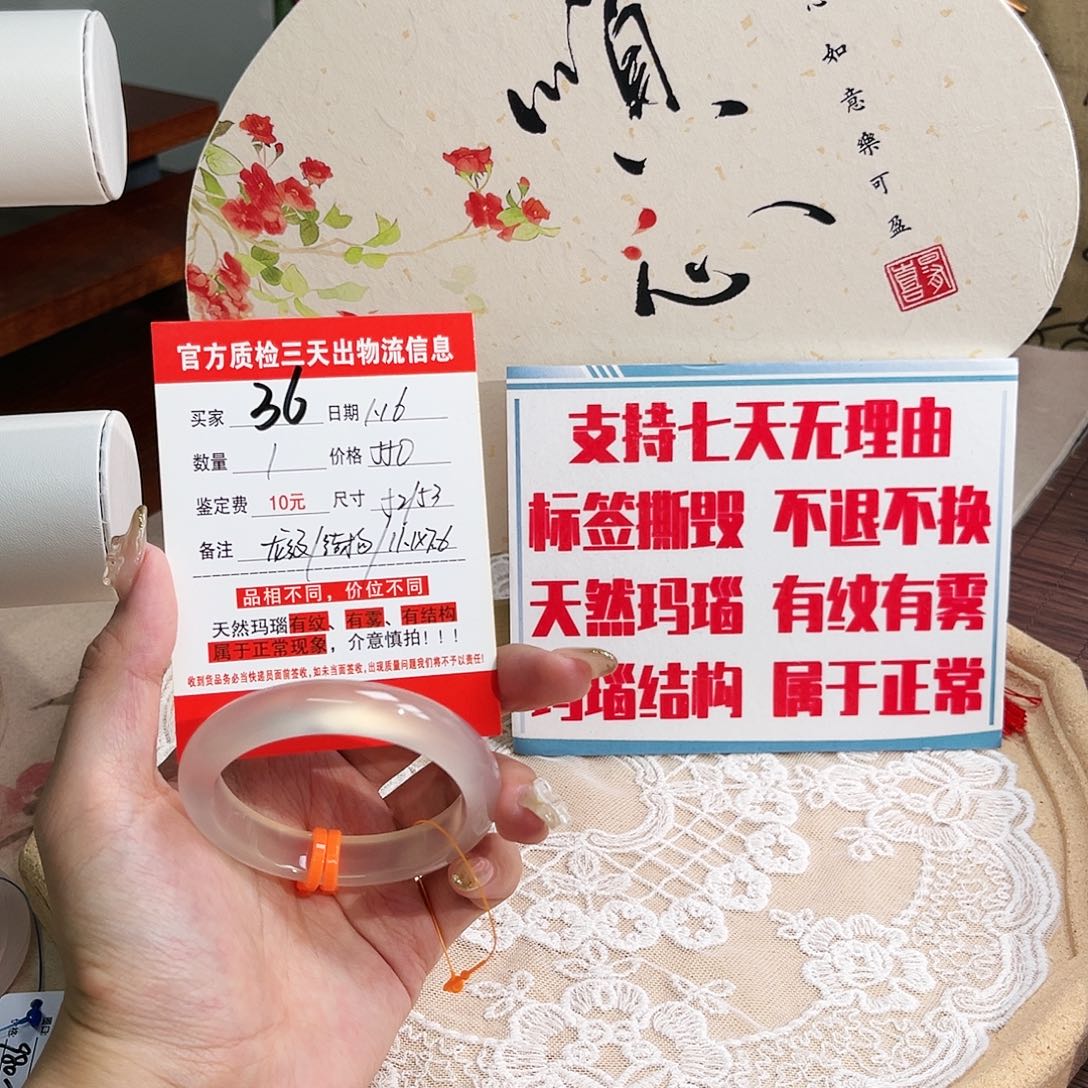 順
心
如
意
樂
可
盈
官方质检三天出物流信息
买家 36 日期 1.16
数量 1 价格 550
鉴定费 10元 尺寸 52/53
备注 结构
品相不同，价位不同
天然玛瑙有纹、有雾、有结构
属于正常现象，介意慎拍！！！
收到货品务必当快递员面前签收，如未当面签收，出现质量问题我们将不予以责任！
支持七天无理由
标签撕毁 不退不换
天然玛瑙 有纹有雾
玛瑙结构 属于正常